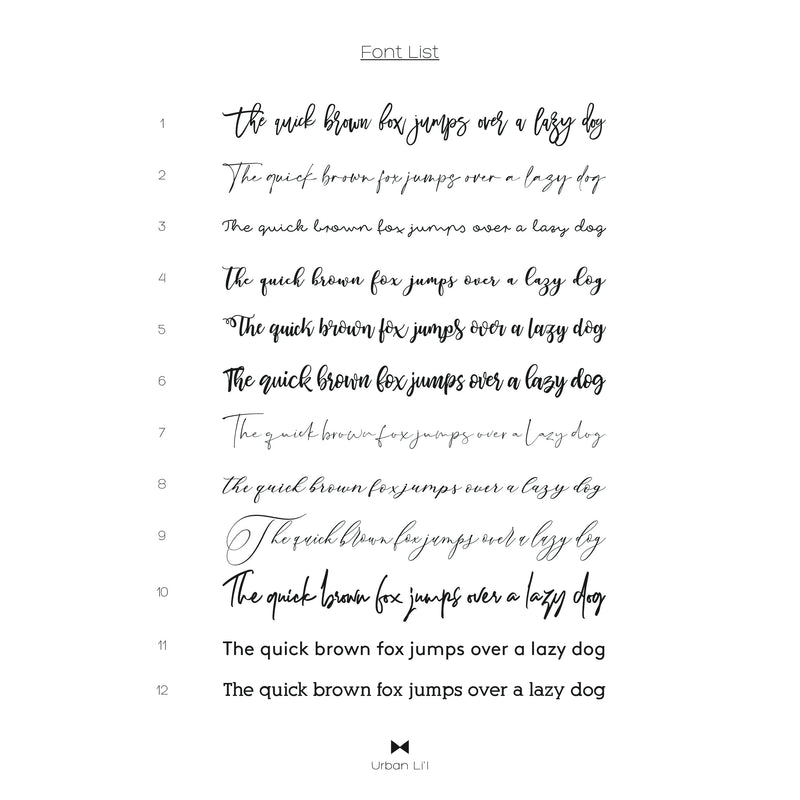 Font List
1 The quick brown fox jumps over a lazy dog
2 The quick brown fox jumps over a lazy dog
3 The quick brown fox jumps over a lazy dog
4 the quick brown fox jumps over a lazy dog
5 The quick brown fox jumps over a lazy dog
6 The quick brown fox jumps over a lazy dog
7 The quick brown fox jumps over a lazy dog
8 the quick brown fox jumps over a lazy dog
9 The quick brown fox jumps over a lazy dog
10 The quick brown fox jumps over a lazy dog
11 The quick brown fox jumps over a lazy dog
12 The quick brown fox jumps over a lazy dog
Urban Li'l